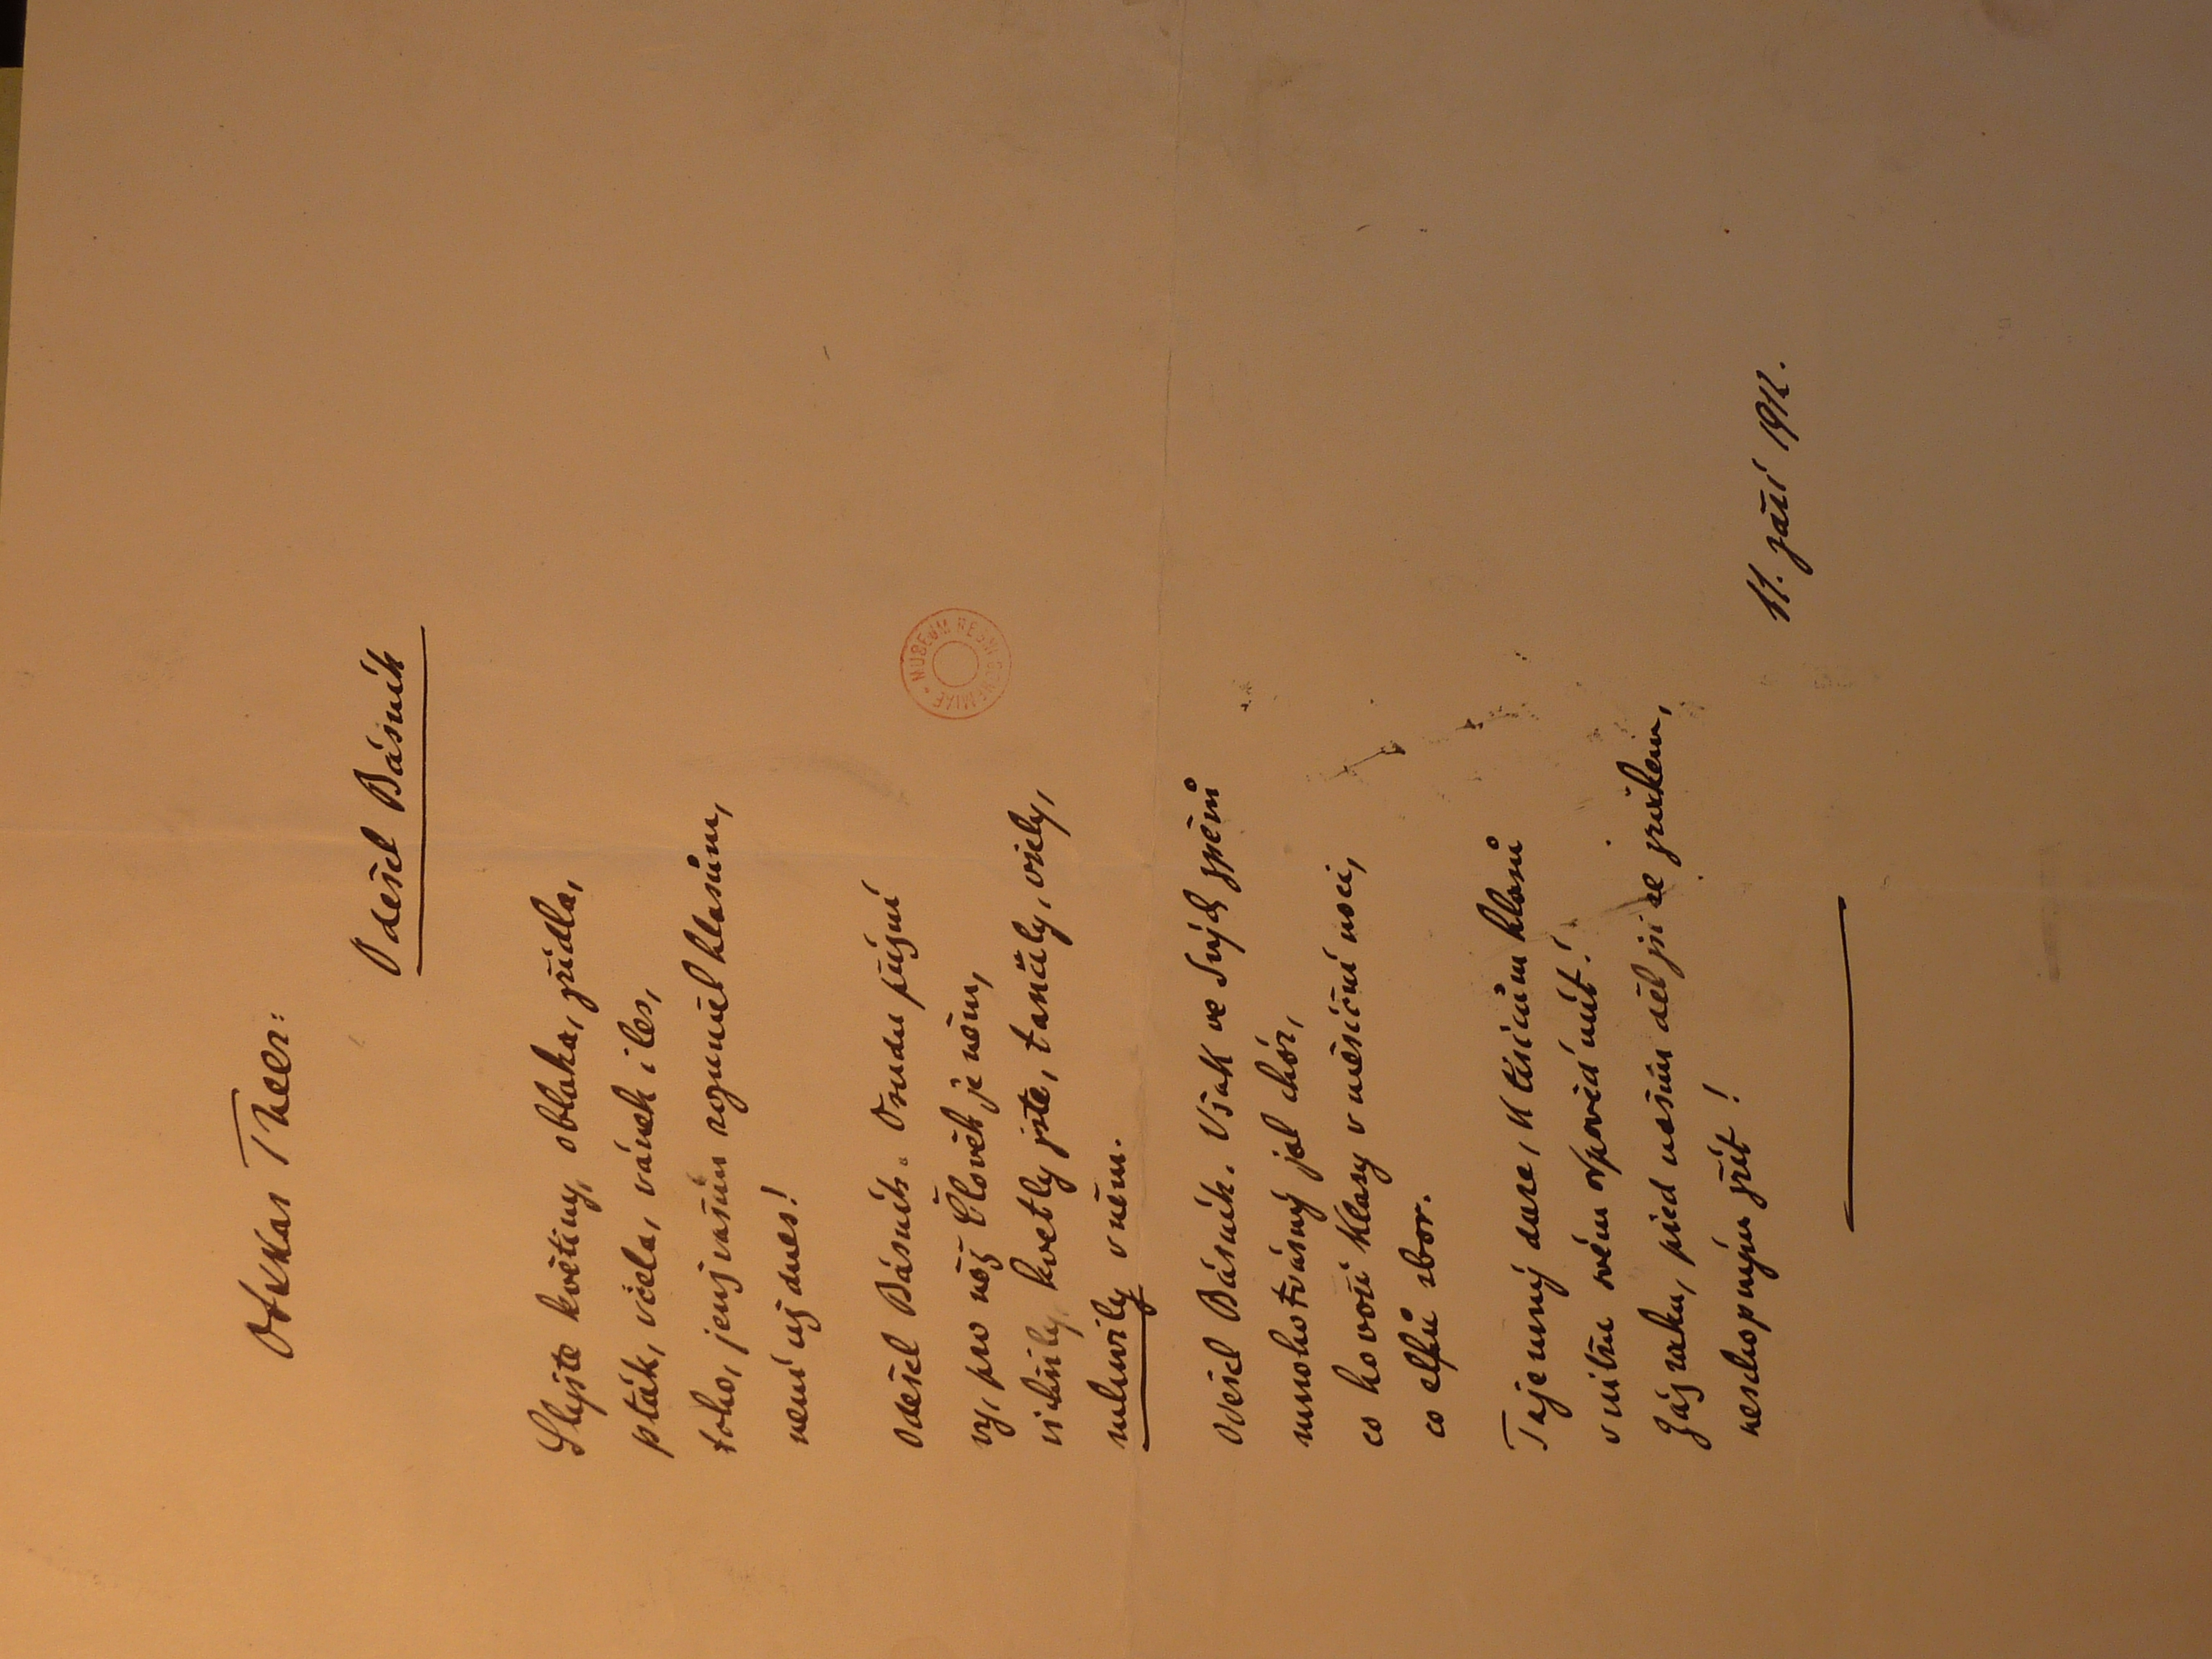 Otakar Theer:
Odešel Básník
Slyšte květiny, oblaka, zřídla,
pták, včela, vánek i les,
toho, jenž vašim rozuměl hlasům,
není už dnes!
Odešel Básník. Osudu přízní
vy, pro něž Člověk je něm,
vichřily, kvetly jste, tančily, vřely,
mluvily v něm.
Odešel Básník. Však ve Svých zpěvů
mnohotvásný jal chór,
co hovoří klasy v měsíční noci,
co elfů sbor.
Tajemný dare, k tisícům hlasů
v nitru svém odpověď mít!
Zázraku, před naším děl jsi se zrakem,
neschopným zřít!
11. září 1912.
MUSEUM REGNI BOHEMIAE